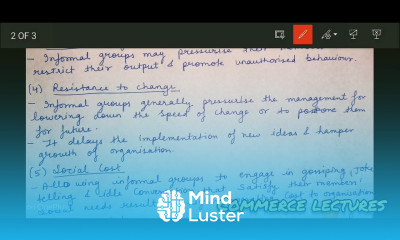 2 OF 3
- Informal groups may pressurise their
restrict their output & promote unauthorised behaviour.
(4) Resistance to change
- Informal groups generally pressurise the management for
lowering down the speed of change or to postpone them
for future.
- It delays the implementation of new ideas & hamper
growth of organisation.
(5) Social Cost
- Allowing informal groups to engage in gossiping, joke
telling & idle that satisfy their members'
needs cost to organisation
Mind
Luster
COMMERCE LECTURES